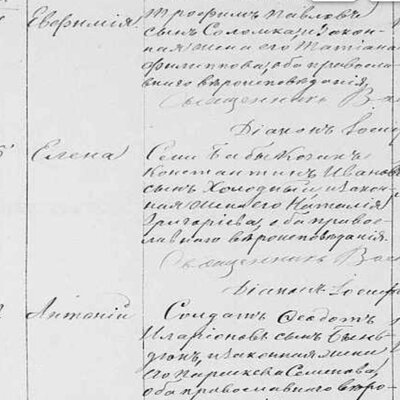 Евфимія
Трофимъ Павловъ
сынъ Соломка, и закон-
ная жена его Татіана
Филиппова, оба православ-
наго вѣроисповѣданія,
Священникъ
Діаконъ
Елена
Села Бабы Козакъ
Константинъ Иванов
сынъ Холодный и закон-
ная жена его Наталія
Григоріева, оба правос-
лавнаго вѣроисповѣданія.
Священникъ
Діаконъ
Антоній
Солдатъ Ѳеодотъ
Иларіоновъ сынъ
и законная жена
его Параскева Семенова,
оба православнаго вѣро-